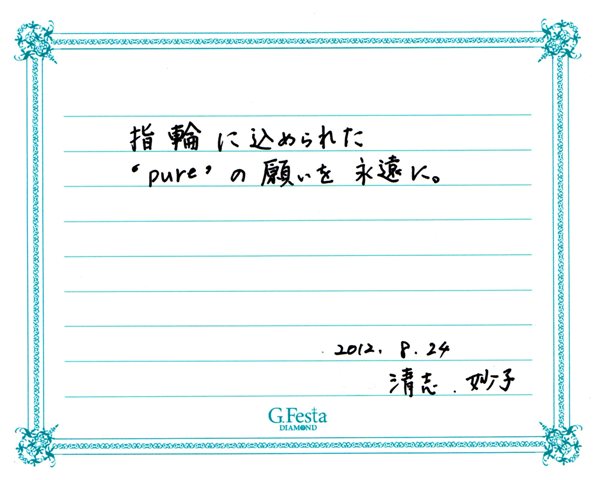 指輪に込められた
‘pure’の願いを永遠に。
2012. 8. 24
清志. 妙子
G.Festa
DIAMOND